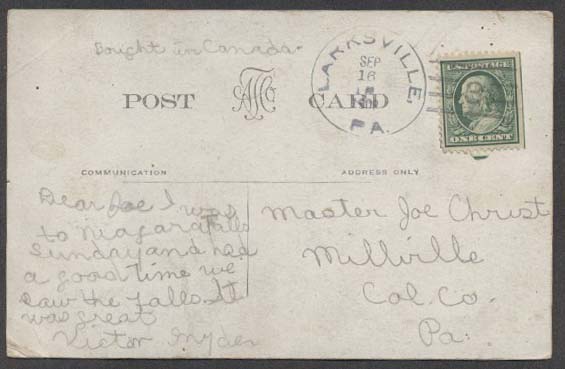 Bought in Canada.
LARKSVILLE,
SEP
16
PA.
U.S. POSTAGE
ONE CENT
POST CARD
COMMUNICATION
ADDRESS ONLY
Dear Joe I was
to Niagara Falls
Sunday and had
a good time we
saw the falls. It
was great
Victor
Master Joe Christ
Millville
Col. Co.
Pa.